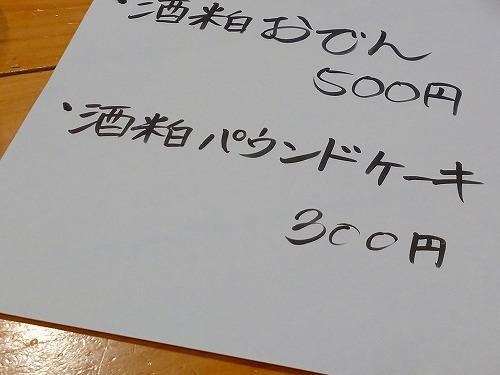 ・酒粕おでん
500円
・酒粕パウンドケーキ
300円